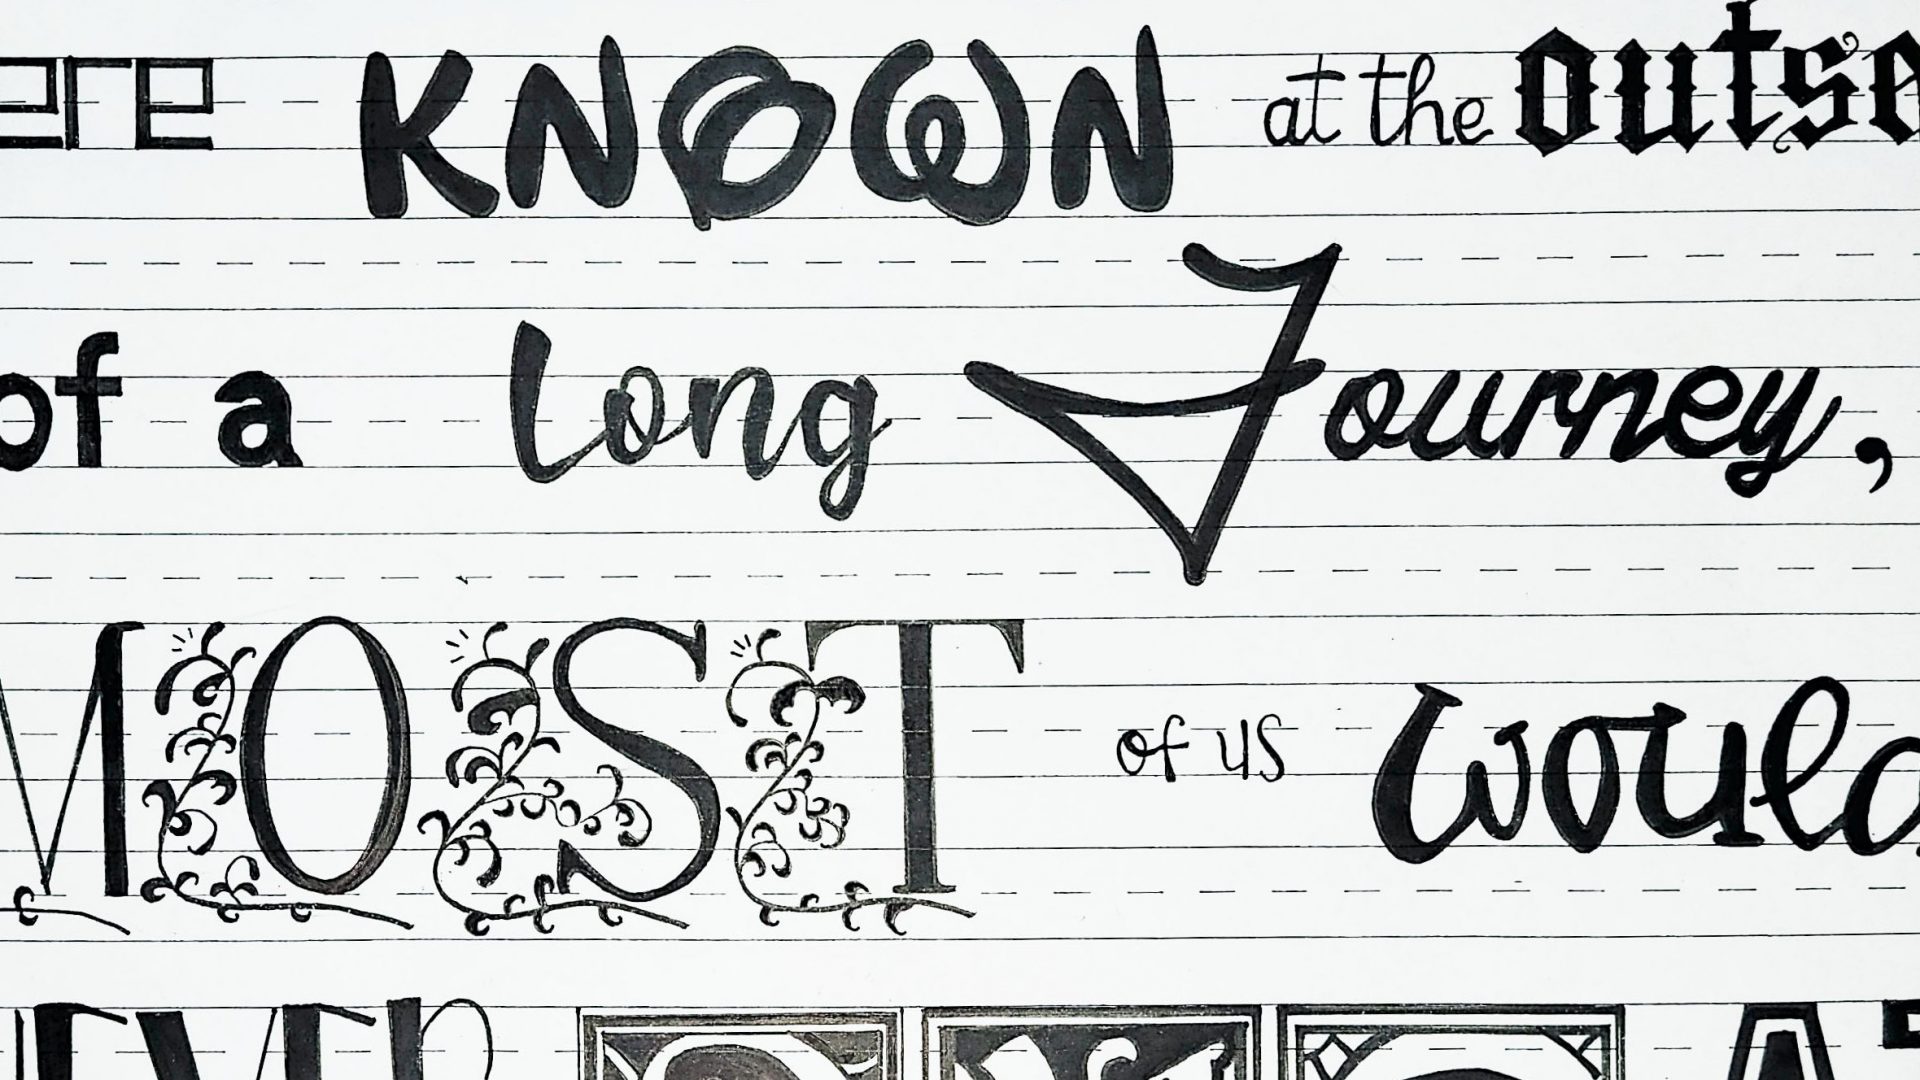 ere KNOWN at the outse
of a long Journey,
MOST of us would
EVER